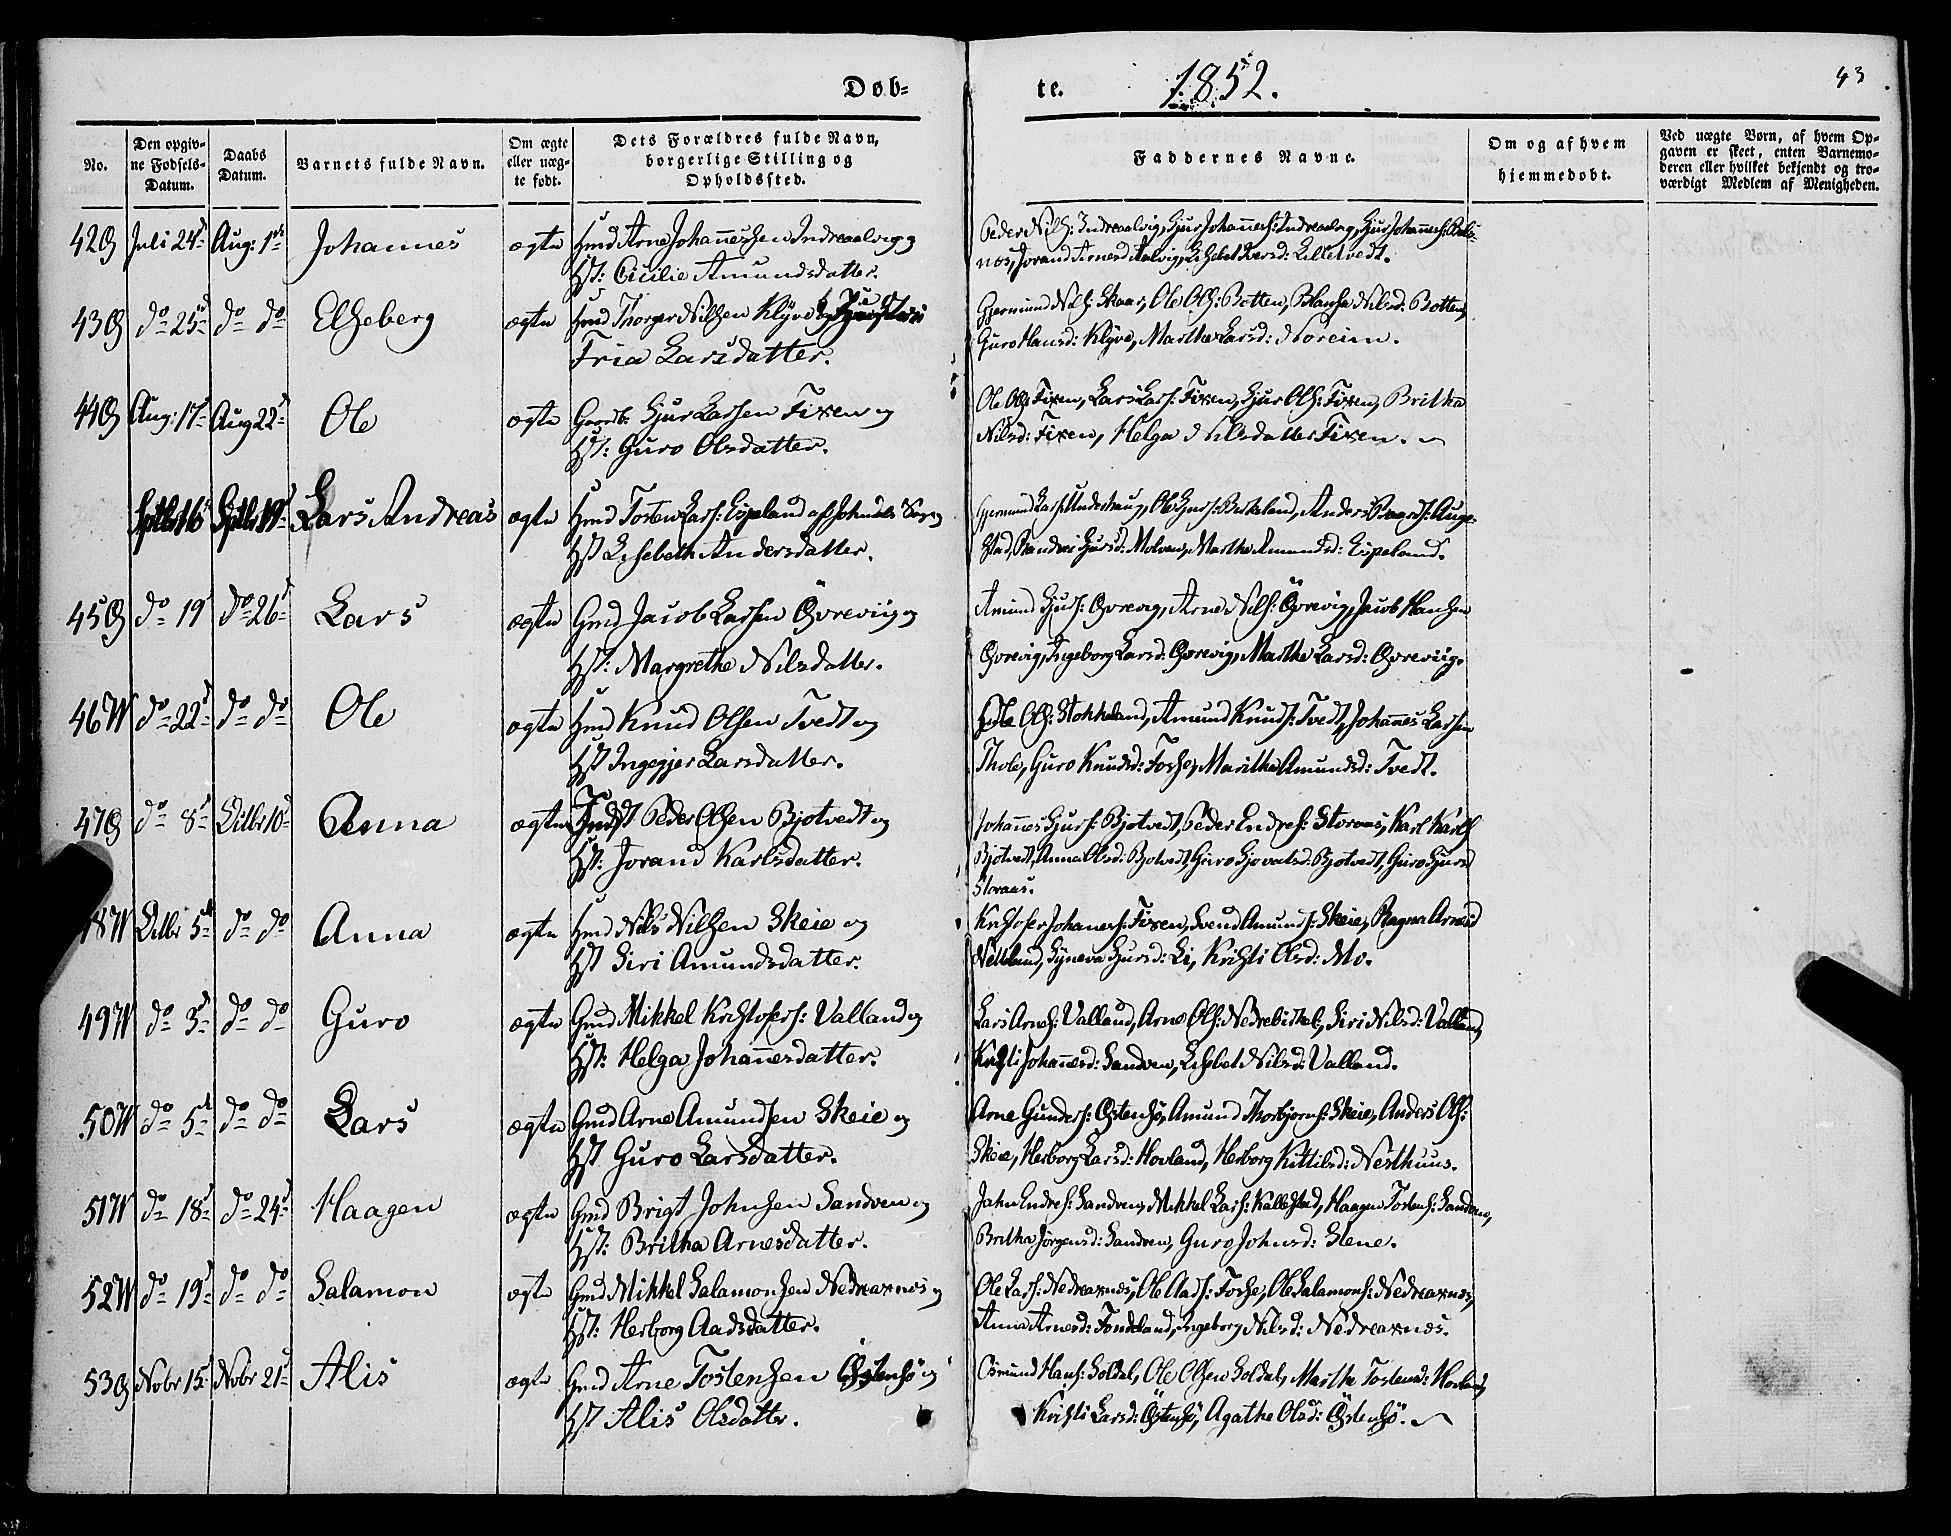 Døb-
te.
1852.
43
No.
Den opgiv-
ne Fødsels-
Datum.
Daabs
Datum.
Barnets fulde Navn.
Om ægte
eller uæg-
te født.
Dets Forældres fulde Navn,
borgerlige Stilling og
Opholdssted.
Faddernes Navne.
Om og af hvem
hjemmedøbt.
Ved uægte Børn, af hvem Op-
gaven er skeet, enten Barnemo-
deren eller hvilket bekjendt og tro-
værdigt Medlem af Menigheden.
42 Juli 24d Aug: 1ste Johannes ægte Arne Johannessen Indreaalvig og
Hst: Cicilie Amundsdatter.
Peder Nils: Indreaalvig, Gjur Johannes: Indreaalvig, Gjur Johannes:
næs, Jorand Arnesd Aalvig, Lisebet Iversd: Lilletvedt.
43 do 25de do do Elseberg ægte Torger Nilsen Klyve og
Fria Larsdatter.
Gjermund Nils: Skaar, Ole Ols: Botten, Nilsd: Botten,
Guro Hansd: Klyve, Marthe Larsd: Noreim.
44 Aug: 17d Aug 22d Ole ægte Gjur Larsen Fixen og
Hst: Guro Olsdatter.
Ole Ols: Fixen, Lars Lars: Fixen, Gjur Ols: Fixen, Britha
Nilsd: Fixen, Helga Nilsdatter Fixen.
Septbr 16 Septbr 19d Lars Andreas ægte Hmd Tosten Lars: Espeland af Sogn og
Hst Lisebeth Andersdatter.
Gjermund Lars: Underhaug, Ole Gjurs: Birkeland, Anders Auge-
stad, Randvei Gjursd: Molven, Marthe Amundsd: Espeland.
45 do 19d do 26d Lars ægte Gmd Jacob Larsen Øvreviig og
Hst: Margrethe Nilsdatter.
Amund Gjurs: Øvrevig, Arne Nils: Øvrevig, Jacob Hansen
Øvrevig, Ingeborg Larsd: Øvrevig, Marthe Larsd: Øvreviig.
46 W do 22d do do Ole ægte Hmd Knud Olsen Tvedt og
Hst Ingegjer Larsdatter.
Ole Ols: Stokkeland, Amund Knuds: Tvedt, Johannes Larsen
Thole, Guro Knudsd: Fosse, Maritha Amundsd: Tvedt.
47 do 8d Octbr 10d Anna ægte Indst Peder Olsen Bjotvedt og
Hst: Jorand Karlsdatter.
Johannes Gjurs: Bjotvedt, Peder Endres: Storaas, Karl Karls
Bjotvedt, Anna Olsd: Bjotvedt, Guro Bjotvedt, Guro Gjursd
Storaas.
48 W Octbr 5te do do Anna ægte Hmd Nils Nilsen Skeie og
Hst Siri Amundsdatter.
Kristofer Johannes: Fixen, Svend Amunds: Skeie, Ragna Arnesd
Netteland, Syneva Gjursd: Li, Kristi Olsd: Mo.
49 W do 3d do do Guro ægte Gmd Mikkel Kristofers: Valland og
Hst: Helga Johannesdatter.
Lars Arnes: Valland, Arne Ols: Siri Nilsd: Valland,
Kristi Johannesd: Sandven, Lisebet Nilsd: Valland.
50 W do 5te do do Lars ægte Gmd Arne Amundsen Skeie og
Hst Guro Larsdatter.
Arne Gunders: Østensø, Amund Thorbjørns: Skeie, Anders Ols:
Skeie, Herborg Larsd: Hovland, Herborg Kittilsd: Nesthuus.
51 W do 18d do 24d Haagen ægte Gmd Brigt Johnsen Sandven og
Hst: Britha Arnesdatter.
John Endres: Sandven, Mikkel Lars: Kallestad, Haagen Tostens: Sandven,
Britha Jørgensd: Sandven, Guro Johnsd: Stene.
52 W do 19d do do Salamon ægte Gmd Mikkel Salamonsen Nedreaxnes og
Hst: Herborg Aadsdatter.
Ole Lars: Nedreaxnes, Ole Aads: Fosse, Ole Salamons: Nedreaxnes,
Anna Arnesd: Ingeborg Nilsd: Nedreaxnes.
53 Novbr 15 Novbr 21d Alis ægte Gmd Arne Tostensen Østensø og
Hst Alis Olsdatter.
Osmund Hans: Soldal, Ole Olsen Soldal, Martha Tostensd: Hovland,
Kristi Larsd: Østensø, Agathe Olsd: Østensø.